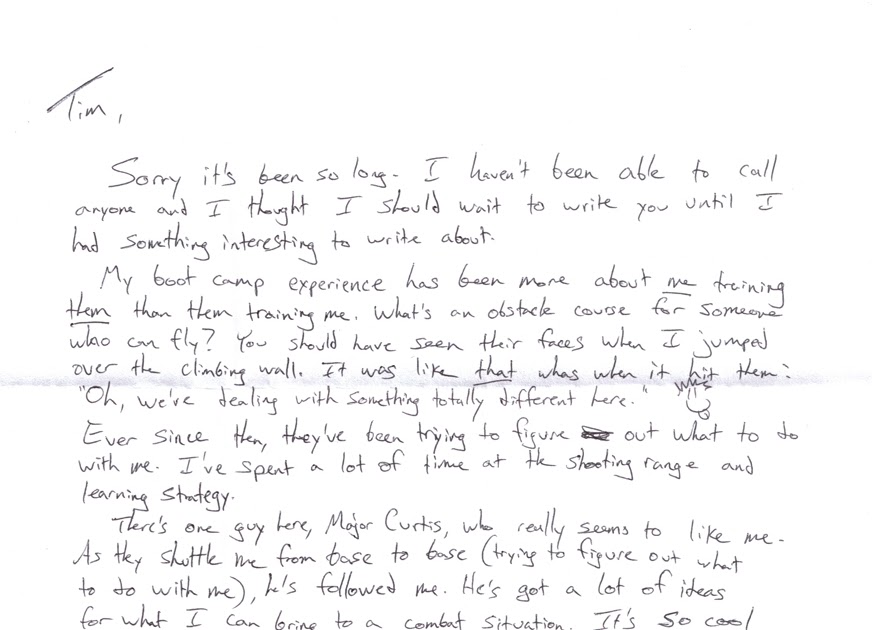 Tim,
Sorry it's been so long. I haven't been able to call
anyone and I thought I should wait to write you until I
had something interesting to write about.
My boot camp experience has been more about me training
them than them training me. What's an obstacle course for someone
who can fly? You should have seen their faces when I jumped
over the climbing wall. It was like that whas when it hit them:
"Oh, we're dealing with something totally different here."
Ever since then, they've been trying to figure out what to do
with me. I've spent a lot of time at the shooting range and
learning strategy.
There's one guy here, Major Curtis, who really seems to like me.
As they shuttle me from base to base (trying to figure out what
to do with me), he's followed me. He's got a lot of ideas
for what I can bring to a combat situation. It's so cool